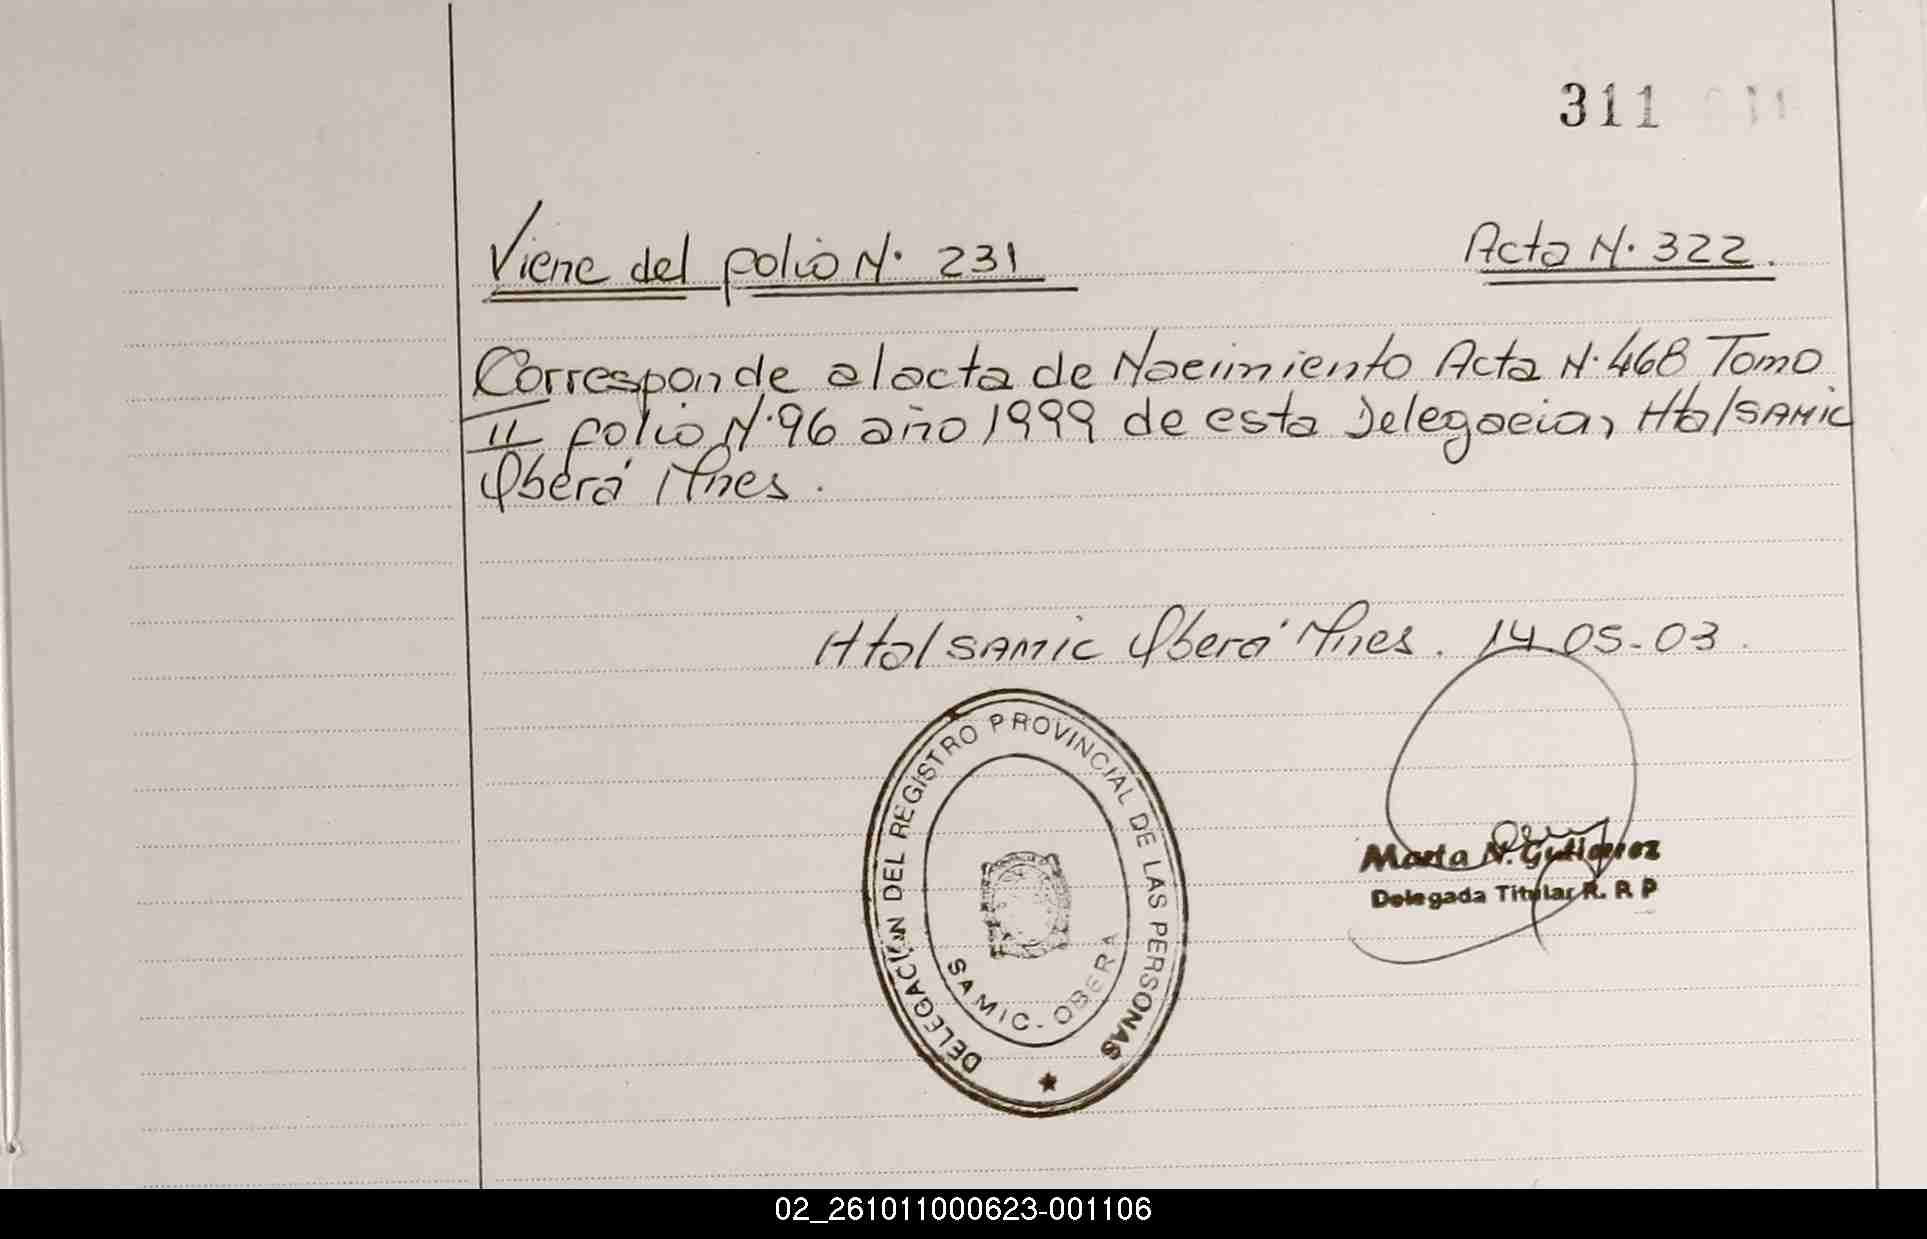 311
Viene del folio N. 231 Acta N. 322.
Corresponde al acta de Nacimiento Acta N. 468 Tomo
II folio N. 96 año 1999 de esta Delegacion Htal SAMIC
Oberá Mnes.
Htal SAMIC Oberá Mnes. 14 05-03.
DELEGACION DEL REGISTRO PROVINCIAL DE LAS PERSONAS
SAMIC - OBERA
Marta N. Gutierrez
Delegada Titular R. R P
02_261011000623-001106